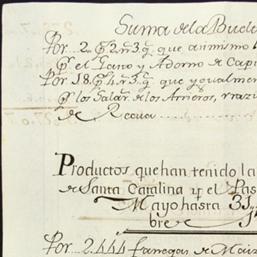 Suma de la Buelt
Por 2. p 2. r 3. g que animismo
p el Pano y Adorno de Capi
Por 18. p 4. r 3. g que ygualmen
p los Salar. de los Arrieros, y razi
de Recua
Productos que han tenido la
de Santa Catalina y el Pas
Mayo hasta 31.
bre de 1
Por 2.444 fanegas de Maiz